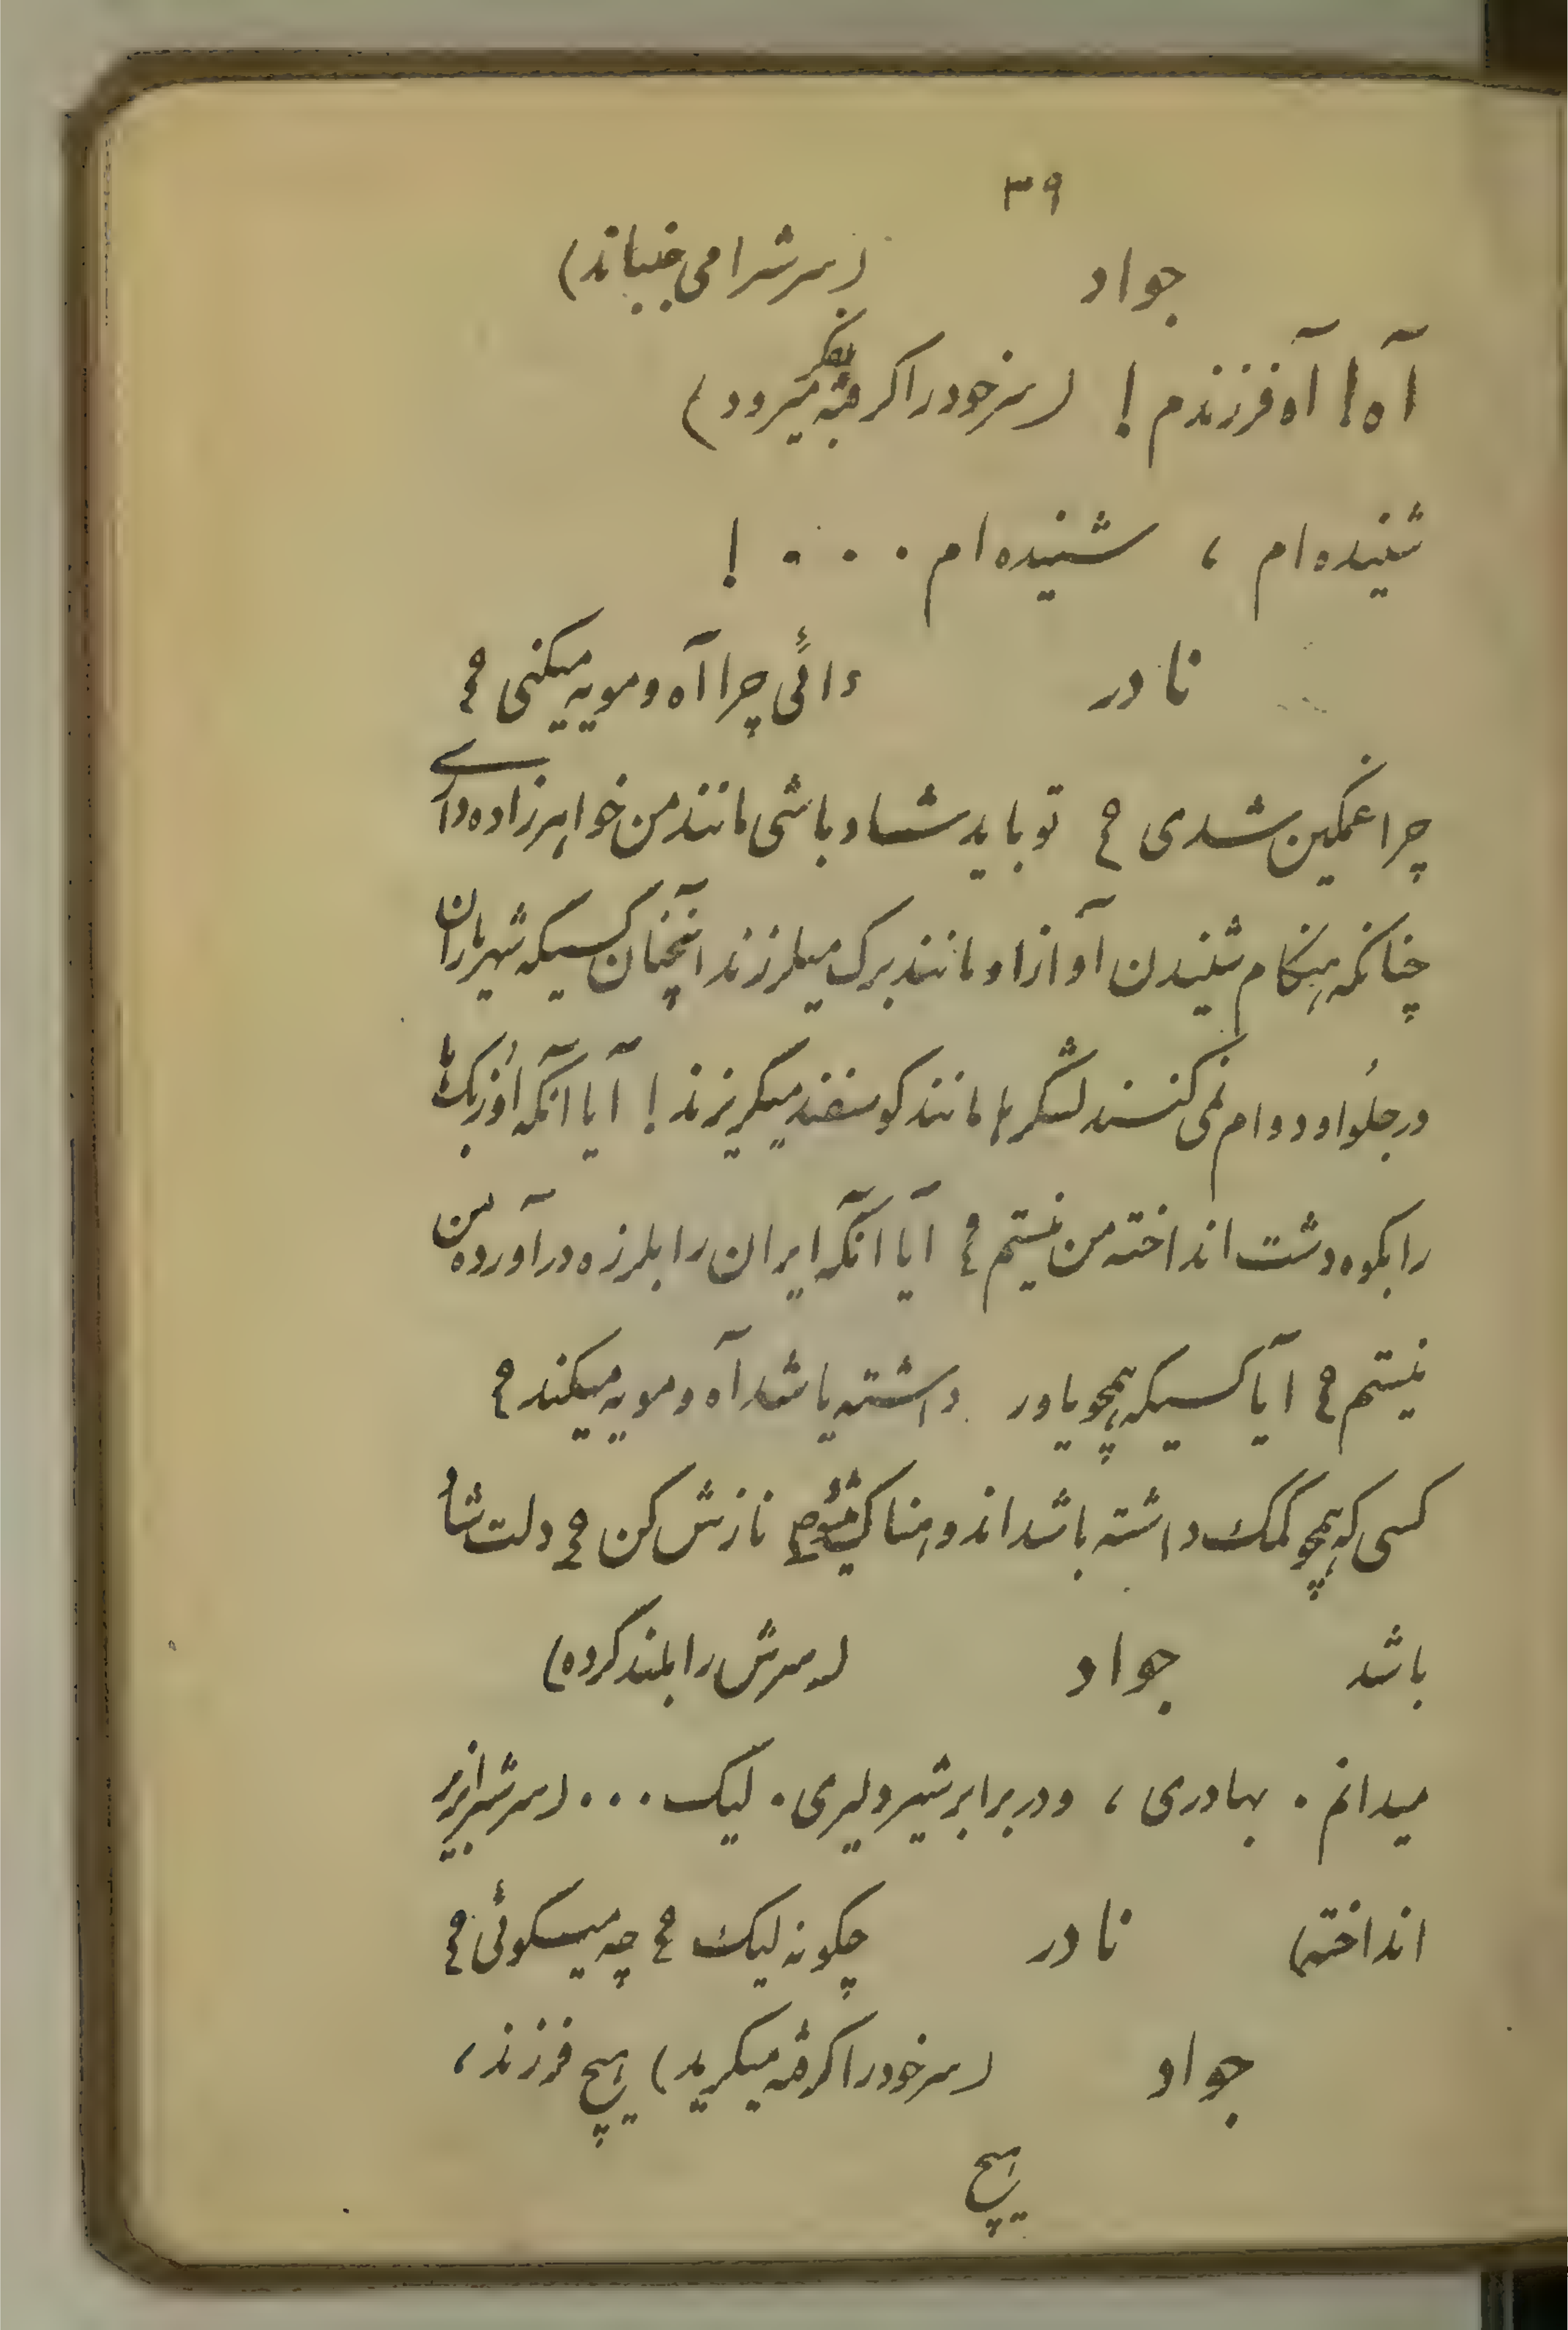 ۳۹
جواد (سرشرا می جنباند)
آه! آه فرزندم! (سرخودرا گرفته بفکر میرود)
شنیده‌ام ، شنیده‌ام . . . !
نادر دائی چرا آه و مویه میکنی ؟
چرا غمگین شدی ؟ تو باید شاد باشی مانند من خواهرزاده داری
چنانکه هنگام شنیدن آواز او مانند برک میلرزند آنچنان کسیکه شهریاران
در جلُو او دوام نمی کنند لشگرها مانند گوسفند میگریزند! آیا آنکه اُوزبک‌ها
را بکوه و دشت انداخته من نیستم ؟ آیا آنکه ایران را بلرزه درآورده من
نیستم ؟ آیا کسیکه همچو یاور داشته باشد آه و مویه میکند ؟
کسی که همچو کمک داشته باشد اندوهناک میشود؟ نازش کن ؟ دلت شاد
باشد جواد (سرش را بلند کرده)
میدانم . بهادری ، و در برابر شیر دلیری . لیک . . . (سرشرا بزیر
انداخته) نادر چکونه لیک ؟ چه میگوئی ؟
جواد (سرخودرا گرفته میگرید) هیچ فرزند ،
هیچ